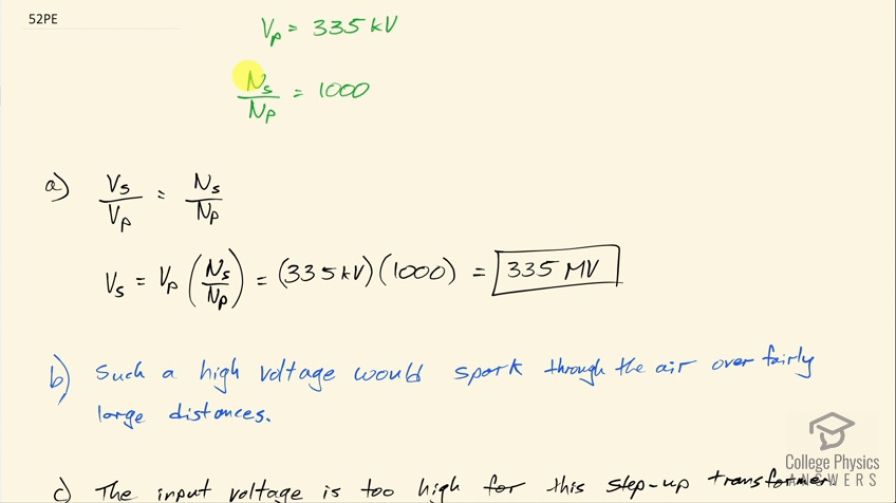 52PE
Vp = 335 kV
Ns/Np = 1000
a) Vs/Vp = Ns/Np
Vs = Vp (Ns/Np) = (335 kV)(1000) = 335 MV
b) Such a high voltage would spark through the air over fairly
large distances.
c) The input voltage is too high for this step-up transformer
College Physics
ANSWERS